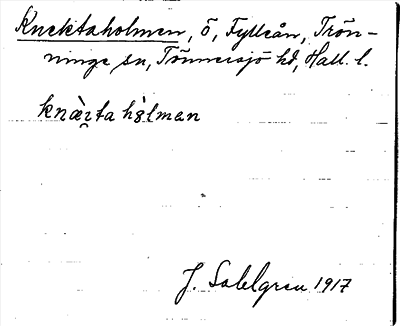 Knektaholmen, ö, Fylleån, Trön-
ninge sn, Tönnersjö hd, Hall. l.
knæ̀ta hålman
J. Sahlgren 1917